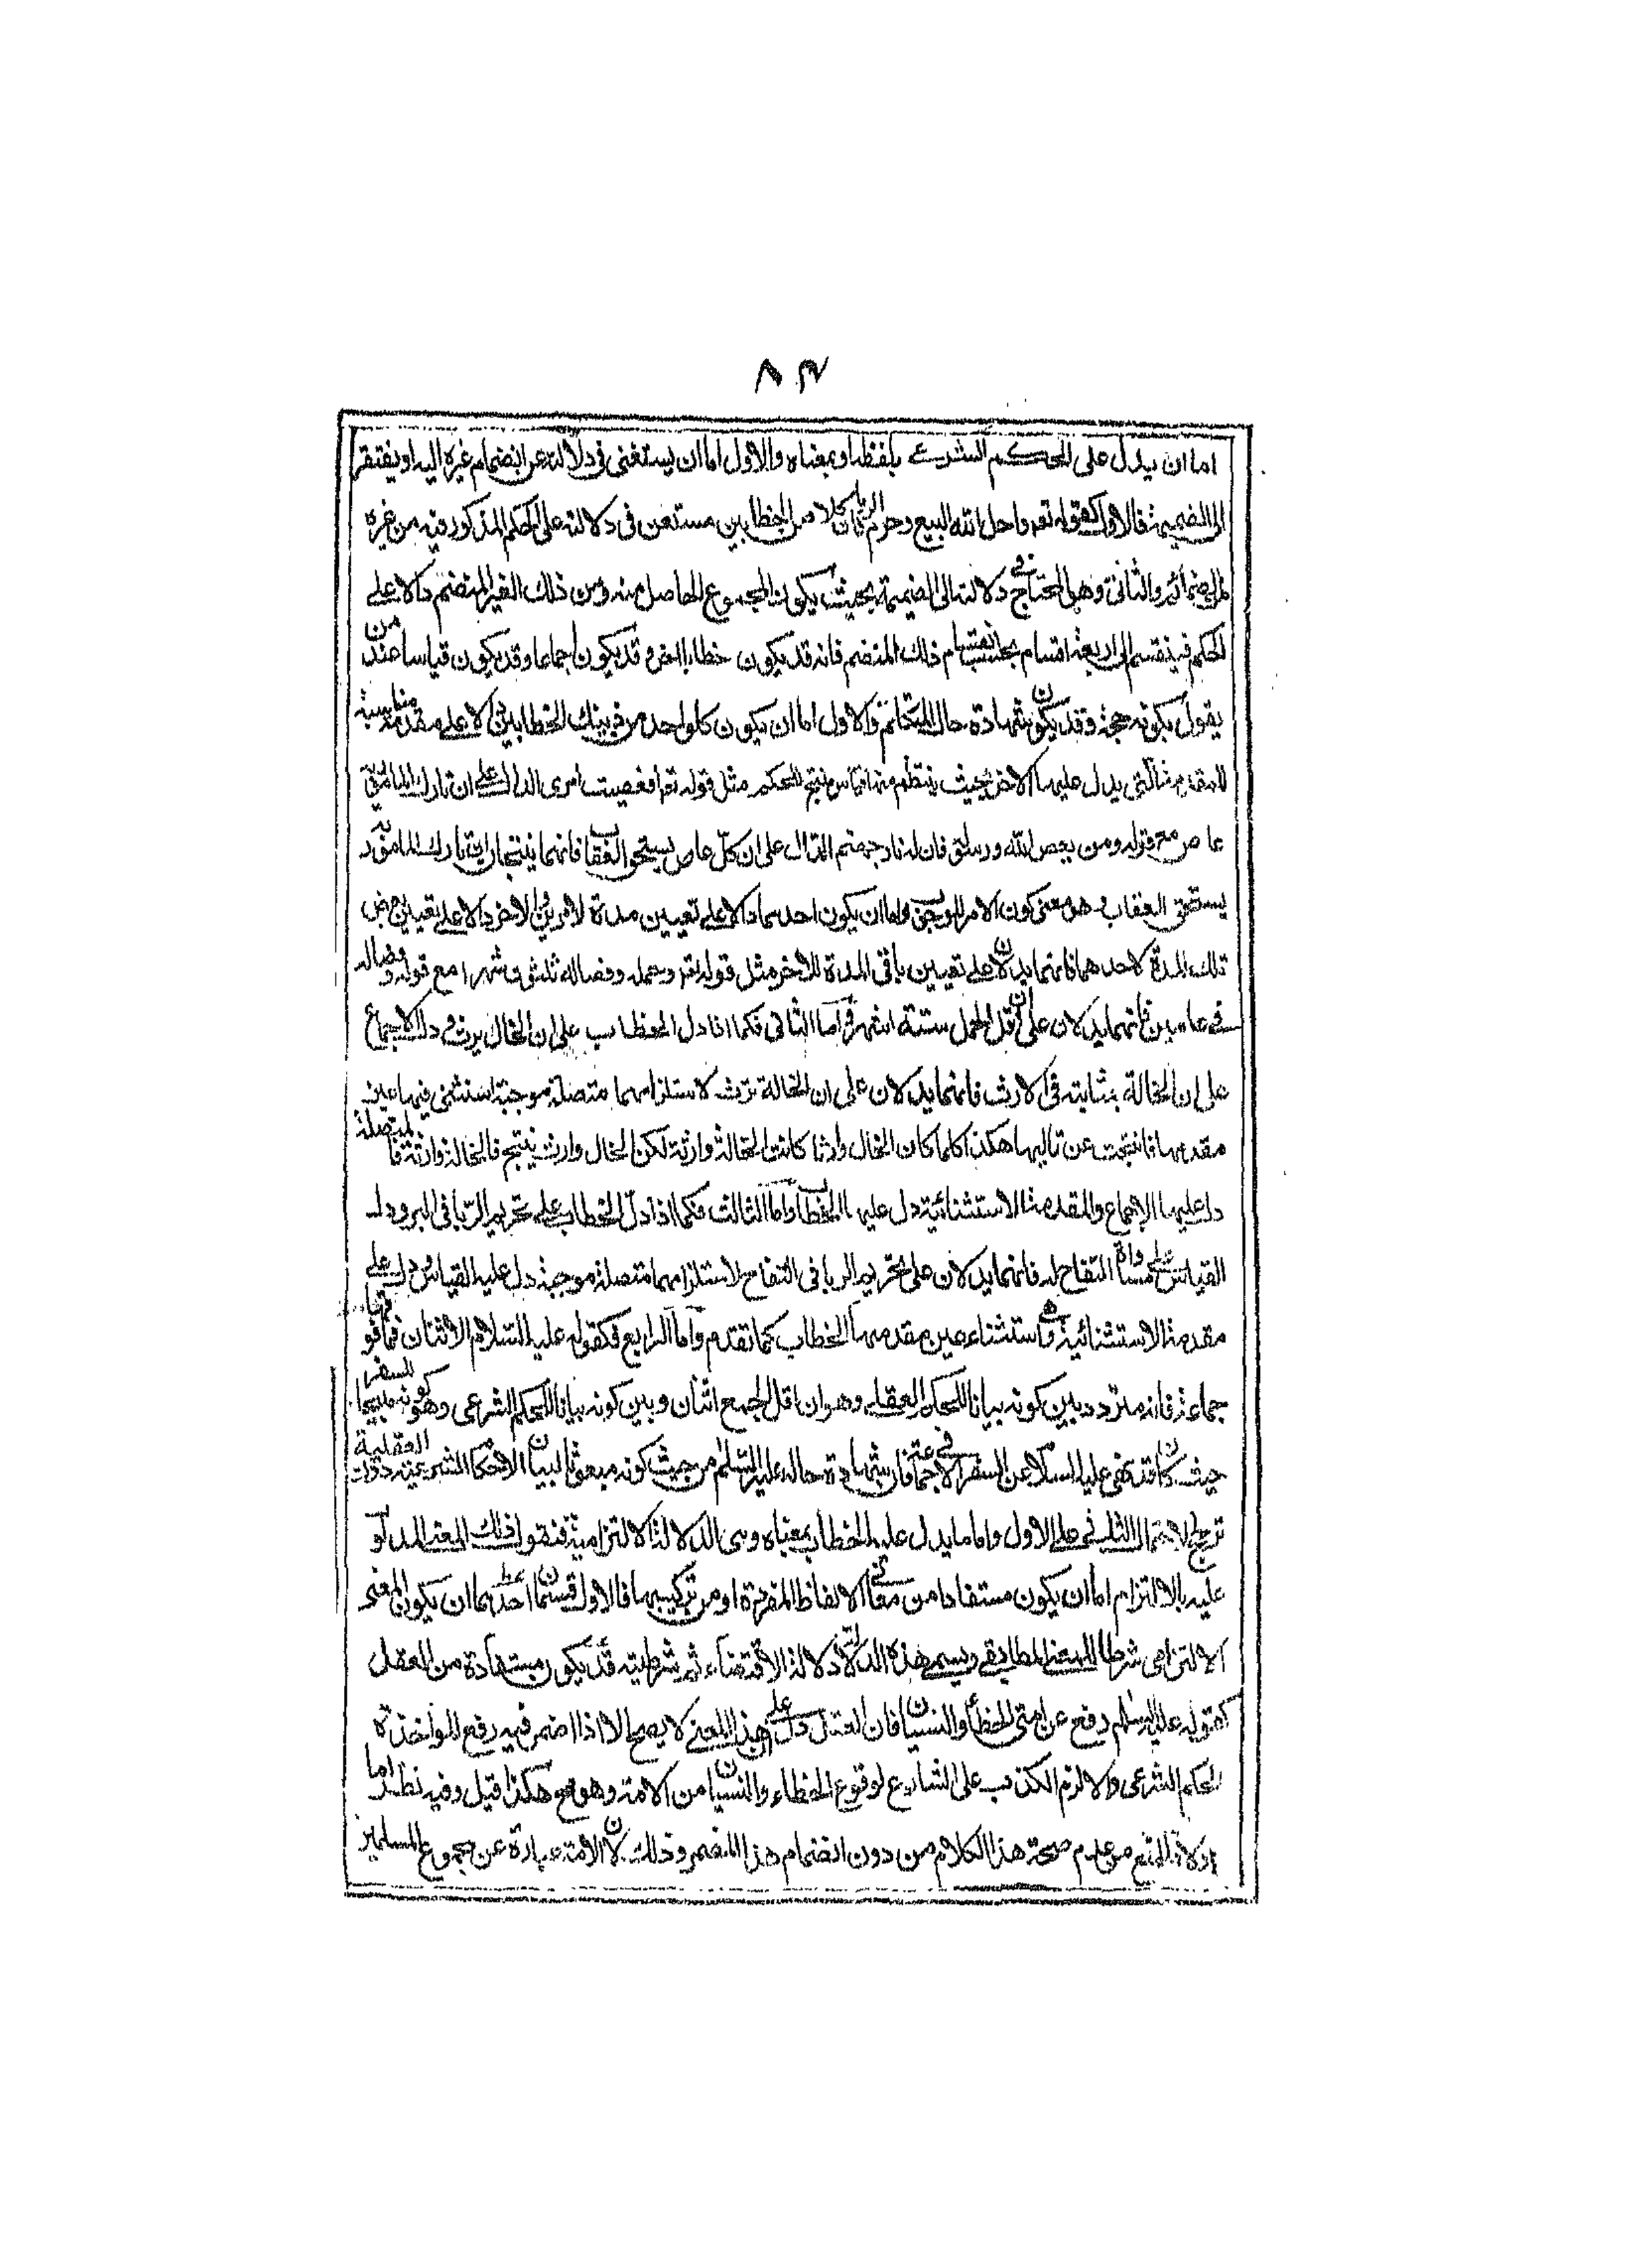 ٨٣
اما ان يدل على الحكم الشرعى بلفظه او بمعناه والاول اما ان يستغنى فى دلالته عن انضمام غيره اليه او يفتقر
الى الضميمة فالاول كقوله تعـ واحل الله البيع وحرم الربا فان كلا من الخطابين مستغن فى دلالته على الحكم المذكور فيه من غيره
والثانى وهو المحتاج فى دلالته الى الضميمة بحيث يكون المجموع الحاصل منه ومن ذلك الغير المنضم دالا على
الحكم فينقسم الى اربعة اقسام بحسب انقسام ذلك المنضم فانه قد يكون خطابا اخر وقد يكون اجماعا وقد يكون قياسا عند من
يقول بكونه حجة وقد يكون شهادة حال المتكلم والاول اما ان يكون كل واحد من ذينك الخطابين دالا على مقدمة مناسبة
للمقدمة التى يدل عليها الاخر بحيث ينتظم منها قياس ينتج الحكم مثل قوله تعـ افعصيت امرى الدال على ان تارك المامور به
عاص مع قوله ومن يعص الله ورسوله فان له نار جهنم الدال على ان كل عاص يستحق العقاب فانهما ينتجان ان تارك المامور به
يستحق العقاب وهو معنى كون الامر للوجوب واما ان يكون احدهما دالا على تعيين مدة لامرين والاخر دالا على تعيين بعض
تلك المدة لاحدهما فانهما يدلان على تعيين باقى المدة للاخر مثل قوله تعـ وحمله وفصاله ثلثون شهرا مع قوله وفصاله
فى عامين فانهما يدلان على ان اقل الحمل ستة اشهر واما الثانى فكما اذا دل الخطاب على ان الخال يرث ودل الاجماع
على ان الخالة بمثابته فى الارث فانهما يدلان على ان الخالة ترث لاستلزامهما متصلة موجبة استثنى فيها عين
مقدمها فانتجت عن تاليها هكذا كلما كان الخال وارثا كانت الخالة وارثة لكن الخال وارث ينتج فالخالة وارثة فالمتصلة
دل عليها الاجماع والمقدمة الاستثنائية دل عليها الخطاب واما الثالث فكما اذا دل الخطاب على تحريم الربا فى البر ودل
القياس على مساواة التفاح له فانهما يدلان على تحريم الربا فى التفاح لاستلزامهما متصلة موجبة دل عليه القياس دل على
مقدمة الاستثنائية واستثناء عين مقدمها الخطاب كما تقدم واما الرابع فكقوله عليه السلام الاثنان فما فوقها
جماعة فانه متردد بين كونه بيانا للحكم العقلى وهو ان اقل الجمع اثنان وبين كونه بيانا للحكم الشرعى وهو كونه مبيحا للسفر
حيث كان قد نهى عليه السلام عن السفر الا فى جماعة فان شهادة حاله عليه السلم من حيث كونه مبعوثا لبيان الاحكام الشرعية دون العقلية
ترجح الاحتمال الثانى على الاول واما ما يدل عليه الخطاب بمعناه وهى الدلالة الالتزامية فنقول ذلك المعنى المدلول
عليه بالالتزام اما ان يكون مستفادا من معانى الالفاظ المفردة او من تركيبها فالاول قسمان احدهما ان يكون المعنى
الالتزامى شرطا للمعنى المطابقى ويسمى هذه الدلالة دلالة الاقتضاء ثم شرطيته قد يكون مستفادة من العقل
كقوله عليه السلم رفع عن امتى الخطأ والنسيان فان العقل دل على ان هذا المعنى لا يصح الا اذا اضمر فيه رفع المؤاخذة
الحكم الشرعى والا لزم الكذب على الشارع لوقوع الخطاء والنسيان من الامة وهو مح هكذا قيل وفيه نظر اما
اولا فلمنع من عدم صحة هذا الكلام من دون انضمام هذا المضمر وذلك لان الامة عبارة عن مجموع المسلمين